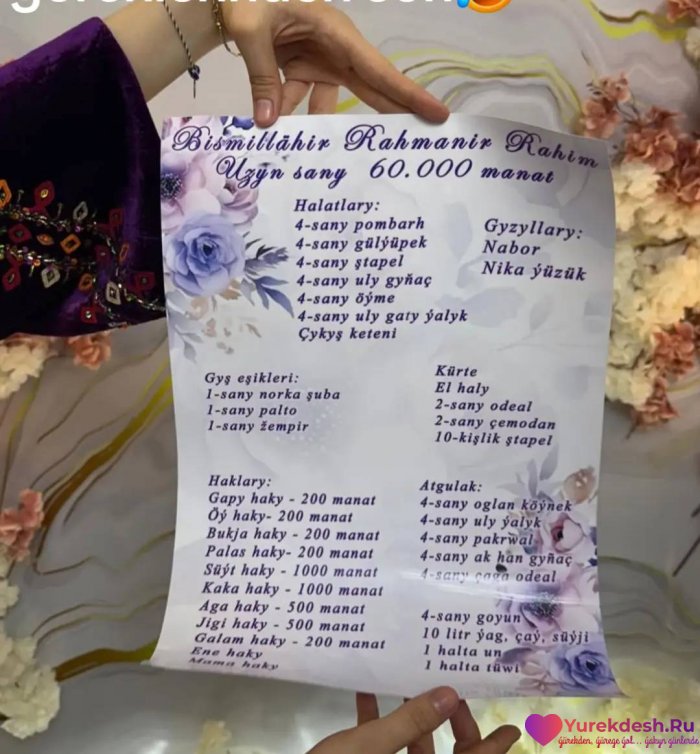 Bismillähir Rahmanir Rahim
Uzyn sany 60.000 manat
Halatlary:
4-sany pombarh
4-sany gülýüpek
4-sany ştapel
4-sany uly gyňaç
4-sany öýme
4-sany uly gaty ýalyk
Çykyş keteni
Gyzyllary:
Nabor
Nika ýüzük
Gyş eşikleri:
1-sany norka şuba
1-sany palto
1-sany žempir
Kürte
El haly
2-sany odeal
2-sany çemodan
10-kişlik ştapel
Haklary:
Gapy haky - 200 manat
Öý haky- 200 manat
Bukja haky - 200 manat
Palas haky- 200 manat
Süýt haky - 1000 manat
Kaka haky - 1000 manat
Aga haky - 500 manat
Jigi haky - 500 manat
Galam haky - 200 manat
Ene haky
Mama haky
Atgulak:
4-sany oglan köýnek
4-sany uly ýalyk
4-sany pakrwal
4-sany ak han gyňaç
4-sany çaga odeal
4-sany goyun
10 litr ýag, çaý, süýji
1 halta un
1 halta tüwi
Yurekdesh.Ru